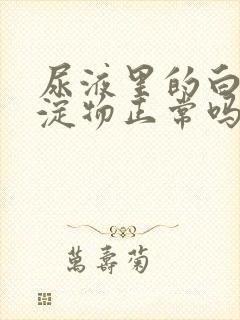 尿液里的白
淀物正常吗
萬壽菊